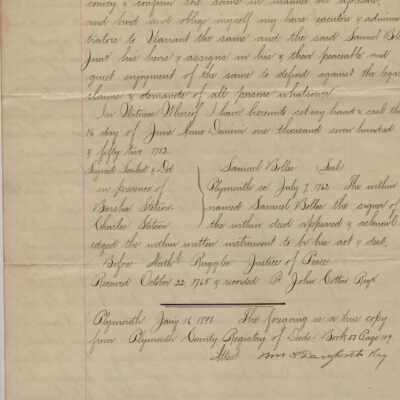 convey & confirm the same in manner as aforesaid
and bind and oblige myself my heirs executors & adminis
trators to Warrant the same and the said Samuel
Junr his heirs & assigns in his & their peaceable and
quiet enjoyment of the same to defend against the legal
claims & demands of all persons whatsoever
In Witness Whereof I have hereunto set my hand & seal the
16 day of June Anno Domini one thousand seven hundred
& fifty two 1752.
Signed Sealed & Del Samuel Seal
in presence of Plymouth ss July 7, 1762 The within
Stetson named Samuel the signer of
Charles Stetson the within deed appeared & acknowl
edged the within written instrument to be his act & deed,
Before Ruggles Justice of Peace
Received October 22 1765 & recorded Pr John Cotton Regr
Plymouth Jany 16 1891 The foregoing is a true copy
from Plymouth County Registry of Deeds Book Page 119
Attest Wm S Danforth Reg